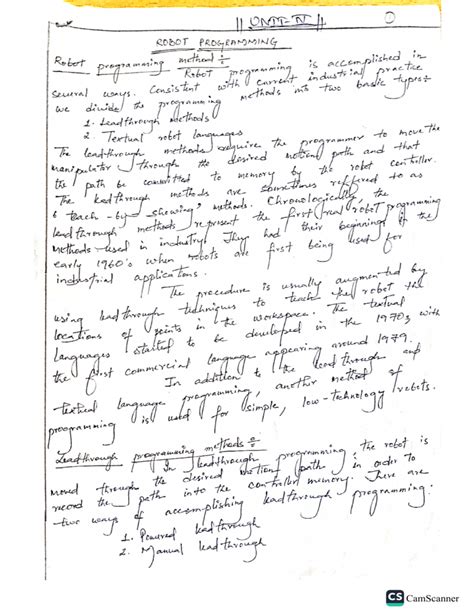 || UNIT-IV ||
1
ROBOT PROGRAMMING
Robot programming method :-
Robot programming is accomplished in
several ways. Consistent with current industrial practice
we divide the programming methods into two basic types:
1. Leadthrough Methods
2. Textual robot languages
The leadthrough methods require the programmer to move the
manipulator through the desired motion path and that
the path be committed to memory by the robot controller.
The leadthrough methods are sometimes reffered to as
"teach-by-showing" methods. Chronologically, the
leadthrough methods represent the first real robot programming
methods used in industry. They had their beginning in the
early 1960's when robots are first being used for
industrial applications.
The procedure is usually augmented by
using leadthrough techniques to teach the robot the
locations of points in the workspace. The textual
languages started to be developed in the 1970s, with
the first commercial language appearing around 1979.
In addition to the leadthrough and
textual language programming, another method of
programming is used for simple, low-technology robots.
Leadthrough programming methods :-
In leadthrough programming, the robot is
moved through the desired motion path in order to
record the path into the controller memory. There are
two ways of accomplishing leadthrough programming:
1. Powered leadthrough
2. Manual leadthrough
CS CamScanner